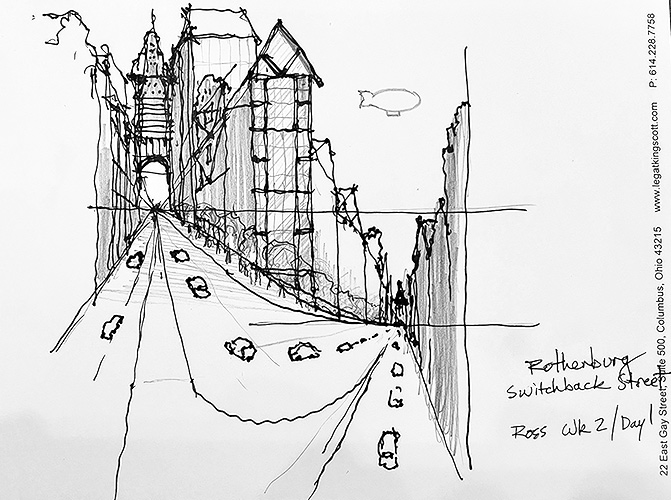 Rothenburg
Switchback Street
Ross Wk 2/Day 1
22 East Gay Street, Suite 500, Columbus, Ohio 43215 www.legatkingscott.com P: 614.228.7758